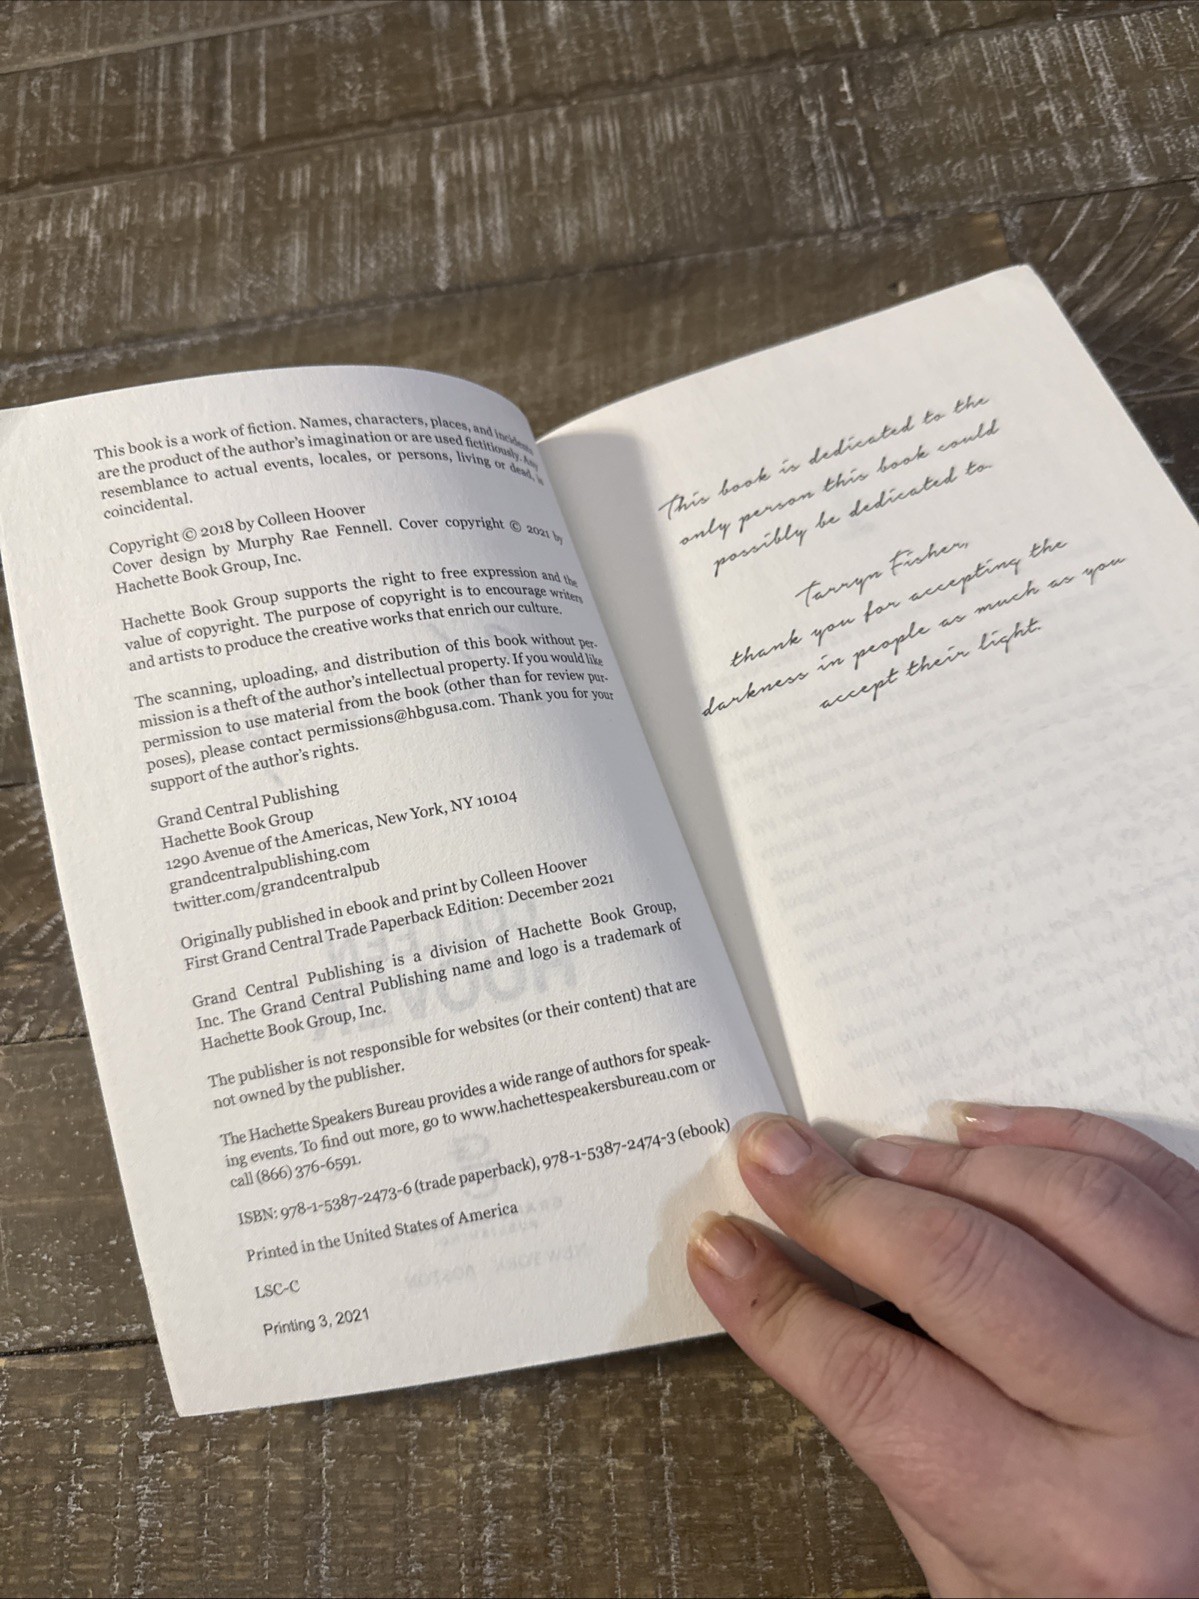 This book is a work of fiction. Names, characters, places, and incidents
are the product of the author's imagination or are used fictitiously. Any
resemblance to actual events, locales, or persons, living or dead, is
coincidental.
Copyright © 2018 by Colleen Hoover
Cover design by Murphy Rae Fennell. Cover copyright © 2021 by
Hachette Book Group, Inc.
Hachette Book Group supports the right to free expression and the
value of copyright. The purpose of copyright is to encourage writers
and artists to produce the creative works that enrich our culture.
The scanning, uploading, and distribution of this book without per-
mission is a theft of the author's intellectual property. If you would like
permission to use material from the book (other than for review pur-
poses), please contact permissions@hbgusa.com. Thank you for your
support of the author's rights.
Grand Central Publishing
Hachette Book Group
1290 Avenue of the Americas, New York, NY 10104
grandcentralpublishing.com
twitter.com/grandcentralpub
Originally published in ebook and print by Colleen Hoover
First Grand Central Trade Paperback Edition: December 2021
Grand Central Publishing is a division of Hachette Book Group,
Inc. The Grand Central Publishing name and logo is a trademark of
Hachette Book Group, Inc.
The publisher is not responsible for websites (or their content) that are
not owned by the publisher.
The Hachette Speakers Bureau provides a wide range of authors for speak-
ing events. To find out more, go to www.hachettespeakersbureau.com or
call (866) 376-6591.
ISBN: 978-1-5387-2473-6 (trade paperback), 978-1-5387-2474-3 (ebook)
Printed in the United States of America
LSC-C
Printing 3, 2021
This book is dedicated to the
only person this book could
possibly be dedicated to.
Tarryn Fisher,
thank you for accepting the
darkness in people as much as you
accept their light.